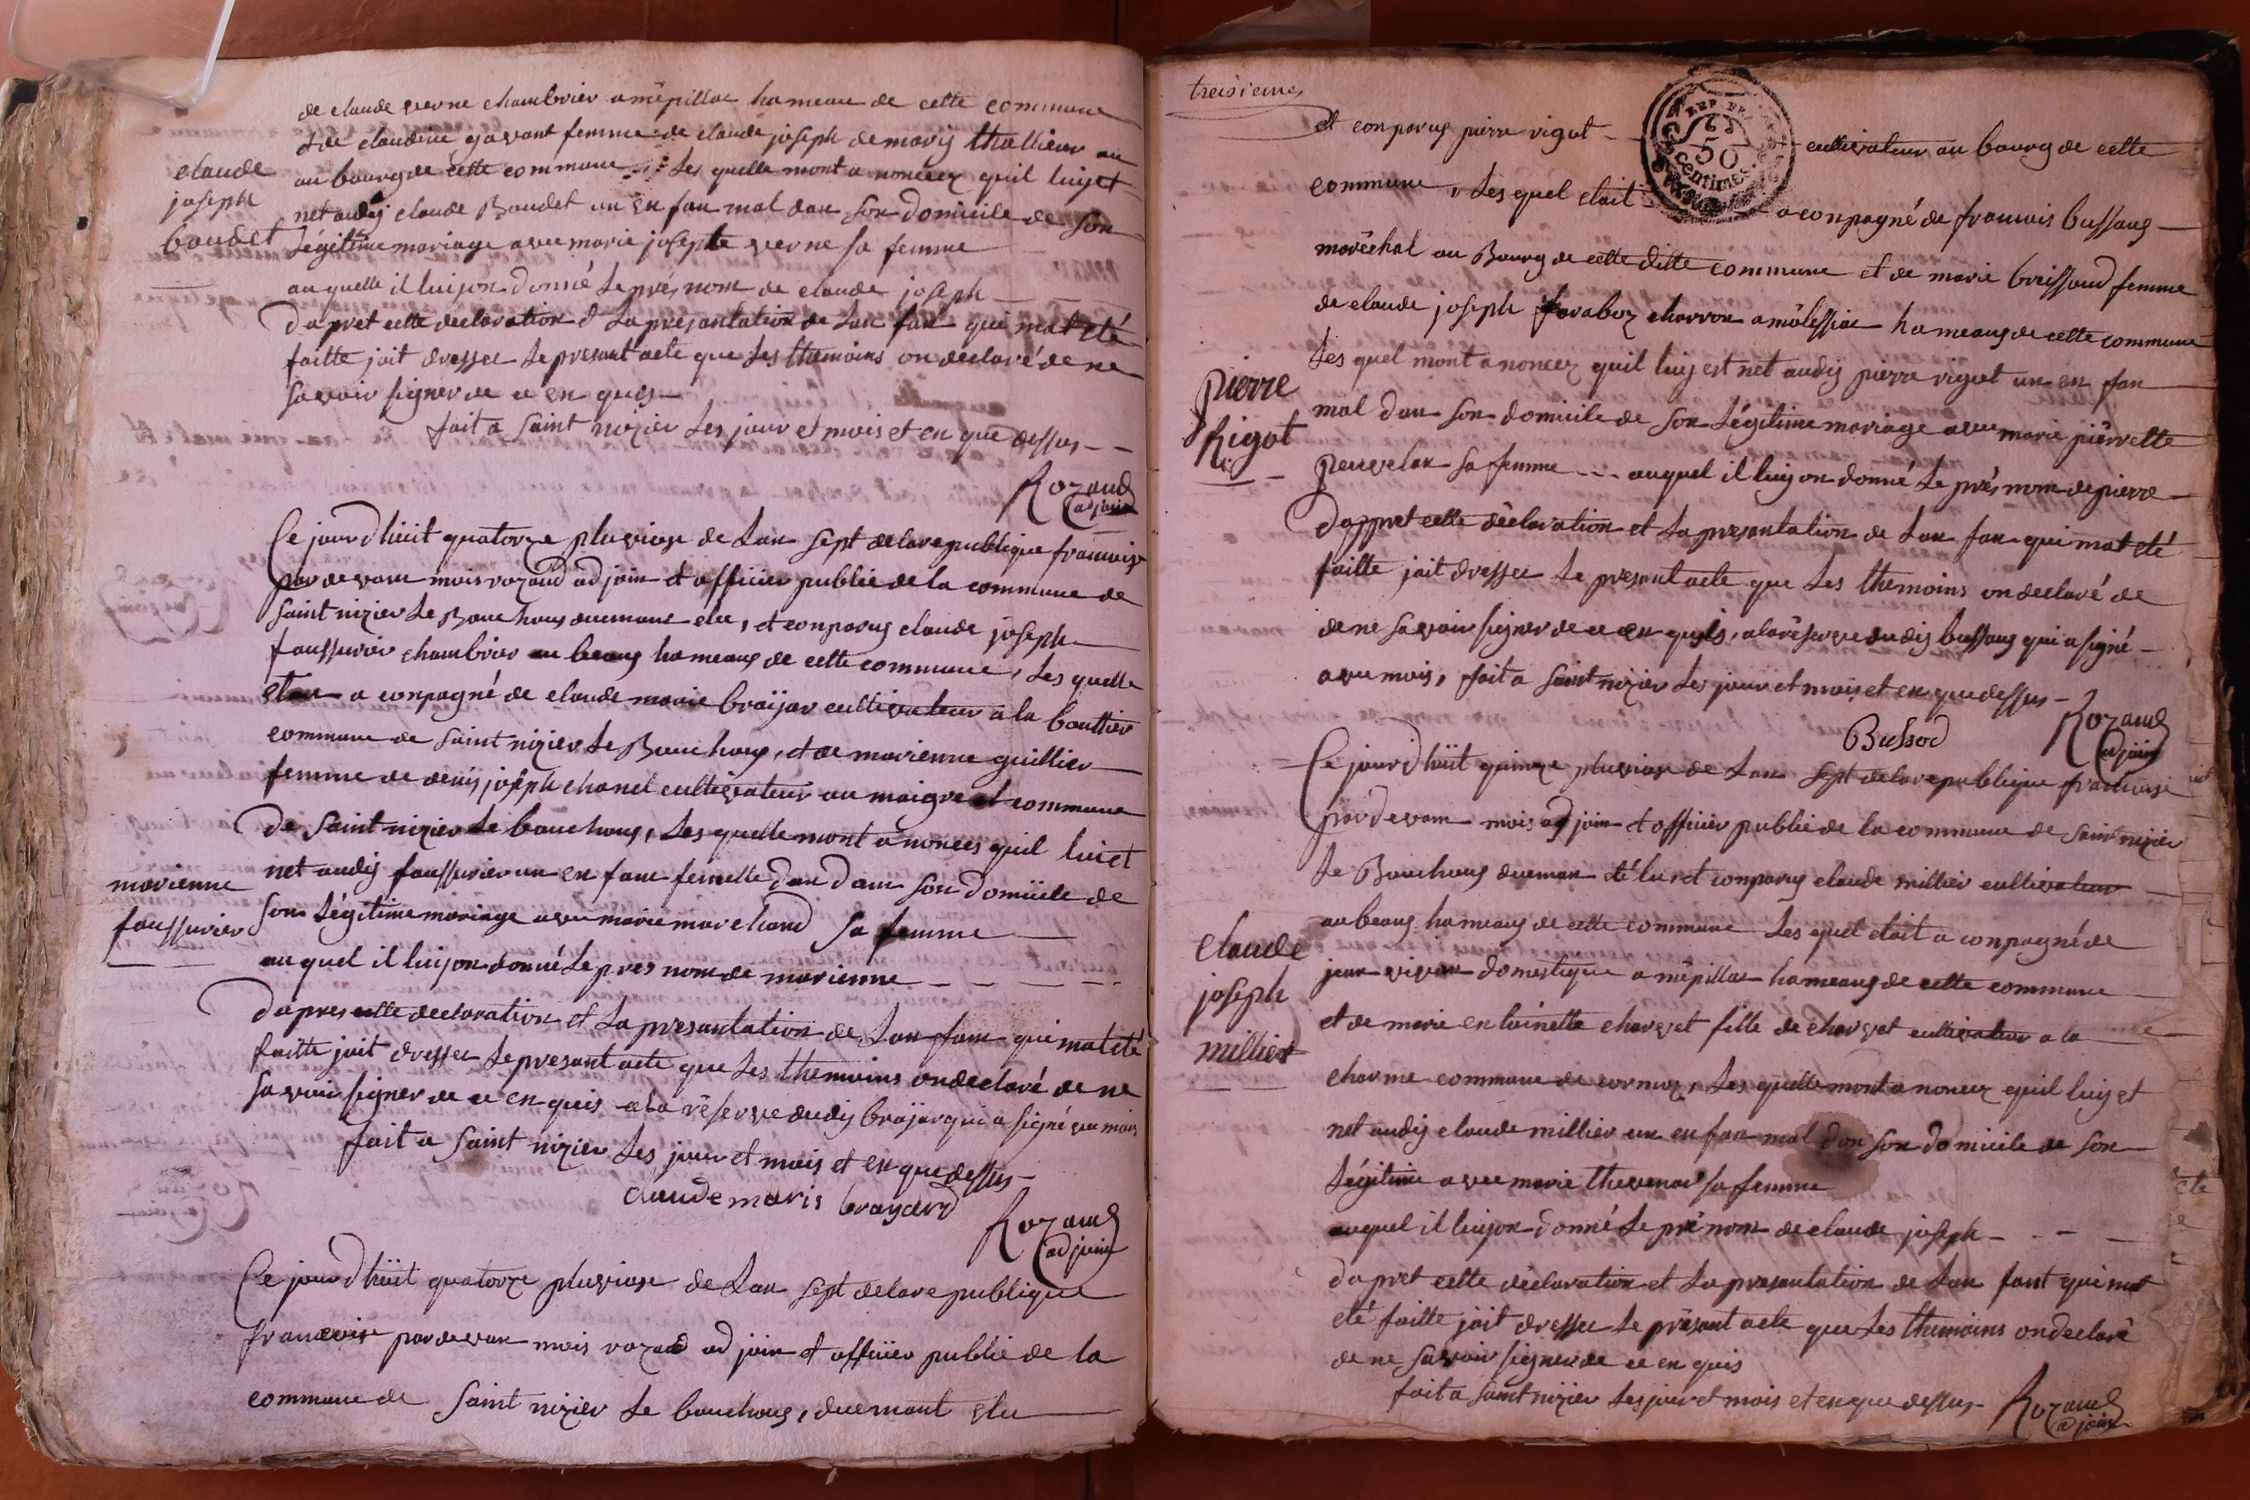 de claude verne chambrier a mêpillac hameau de cette commune
et de claudine gavant femme de claude joseph demaris thallieur au
au bourg de cette commune, Les quelle mont a noncez quil luy et
claude
joseph
baudet
net audij claude Baudet un en fan mal dan son domicile de son
Légitime mariage avec marie josephe verne sa femme
au quelle il luij on donné Le prés nom de claude joseph
Dapret cette declaration et La présantation de Lan fan qui mat eté
faitte jait dressee Le presant acte que Les themoins on déclaré de ne
savoir signer de ce en quis
fait a saint nizier Les jour et mois et en que dessus
Rozand
adjoin
Ce jourdhüit quatorze pluviose de Lan sept de la republique francoise
par devant mois rozand adjoin et officier public de la commune de
saint nizier Le Bouchoux duemant elu, et conparus claude joseph
faussurier chambrier au beaug hameaug de cette commune, Les quelle
etau a conpagné de claude marie braijar cultivateur a la bouttier
commune de saint nizier Le Bouchoug, et de marienne guillier
femme de denij joseph chanel cultivateur au maigret commune
de saint nizier Le bouchoug, Les quelle mont a noncés quil lui et
marienne
faussurier
net audij faussurier un en fant femelle dan dans son domicile de
son Légitime mariage avec marie marchand sa femme
au quel il luij on donné Le pres nom de marienne
Dapres cette declaration et La presantation de Lan fam qui mat eté
faitte jait dressee Le presant acte que Les themoins on declaré de ne
savoir signer de ce en quis a La rêserve dudij braijar qui a signé vec mois
fait a saint nizier Les jour et mois et en que dessus
claude maris brayard
Rozand
adjoin
Ce jourdhüit quatorze pluviose de Lan sept de la republique
francoise par devan mois rozand adjoin et officier public de la
commune de saint nizier Le bouchoug, duemant elu
treisieme
REP. FRA.
50
centimes
et conparus pierre rigot cultivateur au bourg de cette
commune, Les quel etait a conpagné de francois bussaug
maréchal au Bourg de cette ditte commune et de marie brissoud femme
de claude joseph faraboz charron a môlessiac hameaug de cette commune
Les quel mont a noncez quil luij est net audij pierre rigot un en fan
pierre
Rigot
mal dan son domicile de son Légitime mariage avec marie piêrrette
peuvelan sa femme auquel il luij on donné Le prés nom de pierre
Dappret cette dêclaration et La presantation de Lan fan qui mat eté
faitte jait dressee Le presant acte que Les themoins on declaré de
de ne savoir signer de ce en quis, a la réserve dudij bussaug qui a signé
avec mois, fait a saint nizier Les jour et mois et en que dessus
Bussod
Rozand
adjoin
Ce jourdhüit quinze pluviose de Lan sept de la republique francoise
par devam mois adjoin et officier public de la commune de saint nizier
Le Bouchoug dueman été lu et conparus claude millier cultivateur
claude
joseph
millier
au beaug hameaug de cette commune Les quel etait a conpagné de
jean vivian domestique a mêpillac hameaug de cette commune
et de marie entoinette charvet fille de charvet cultivateur a la
charme commune de cormoz, Les quelle mont a noncez quil luij et
net audij claude millier un en fan mal dan son domicile de son
Légitime avec marie thevenas sa femme
auquel il luij on donné Le pré nom de claude joseph
dapret cette déclaration et La presantation de Lan fant qui mat
eté faitte jait dressee Le présant acte que Les themoins on declaré
de ne savoir signer de ce en quis
fait a saint nizier Les jour et mois et en que dessus
Rozand
adjoin